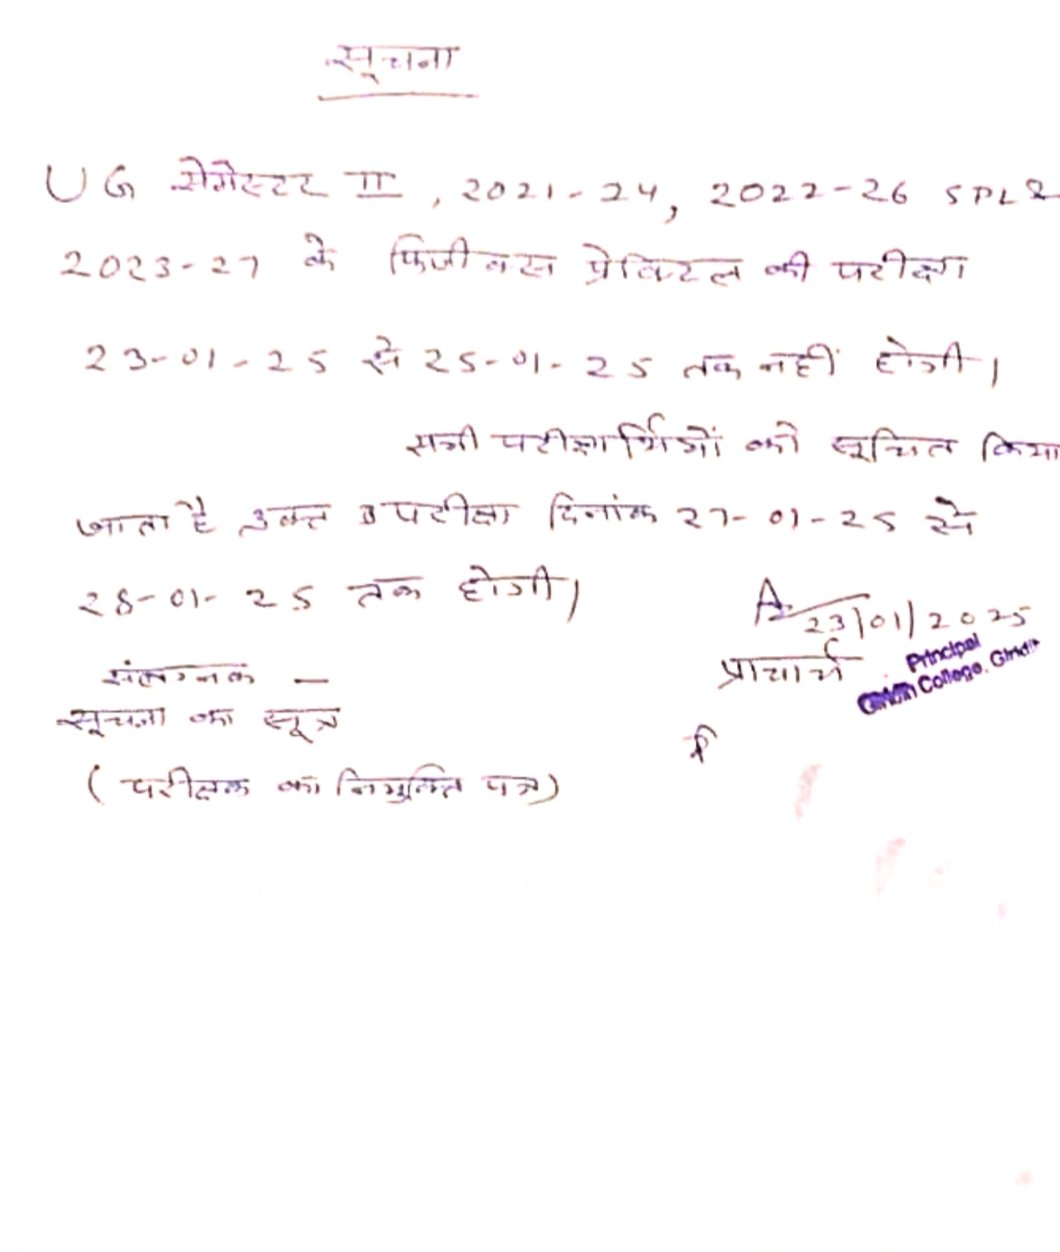 सूचना
UG सेमेस्टर II, 2021-24, 2022-26 SPL &
2023-27 के फिजीक्स प्रेक्टिल की परीक्षा
23-01-25 से 25-01-25 तक नहीं होगी।
सभी परीक्षार्थियों को सूचित किया
जाता है उक्त परीक्षा दिनांक 27-01-25 से
28-01-25 तक होगी।
23/01/2025
प्राचार्य
Principal
Giridih College, Giridih
संलग्नक –
सूचना का सूत्र
(परीक्षक का नियुक्ति पत्र)